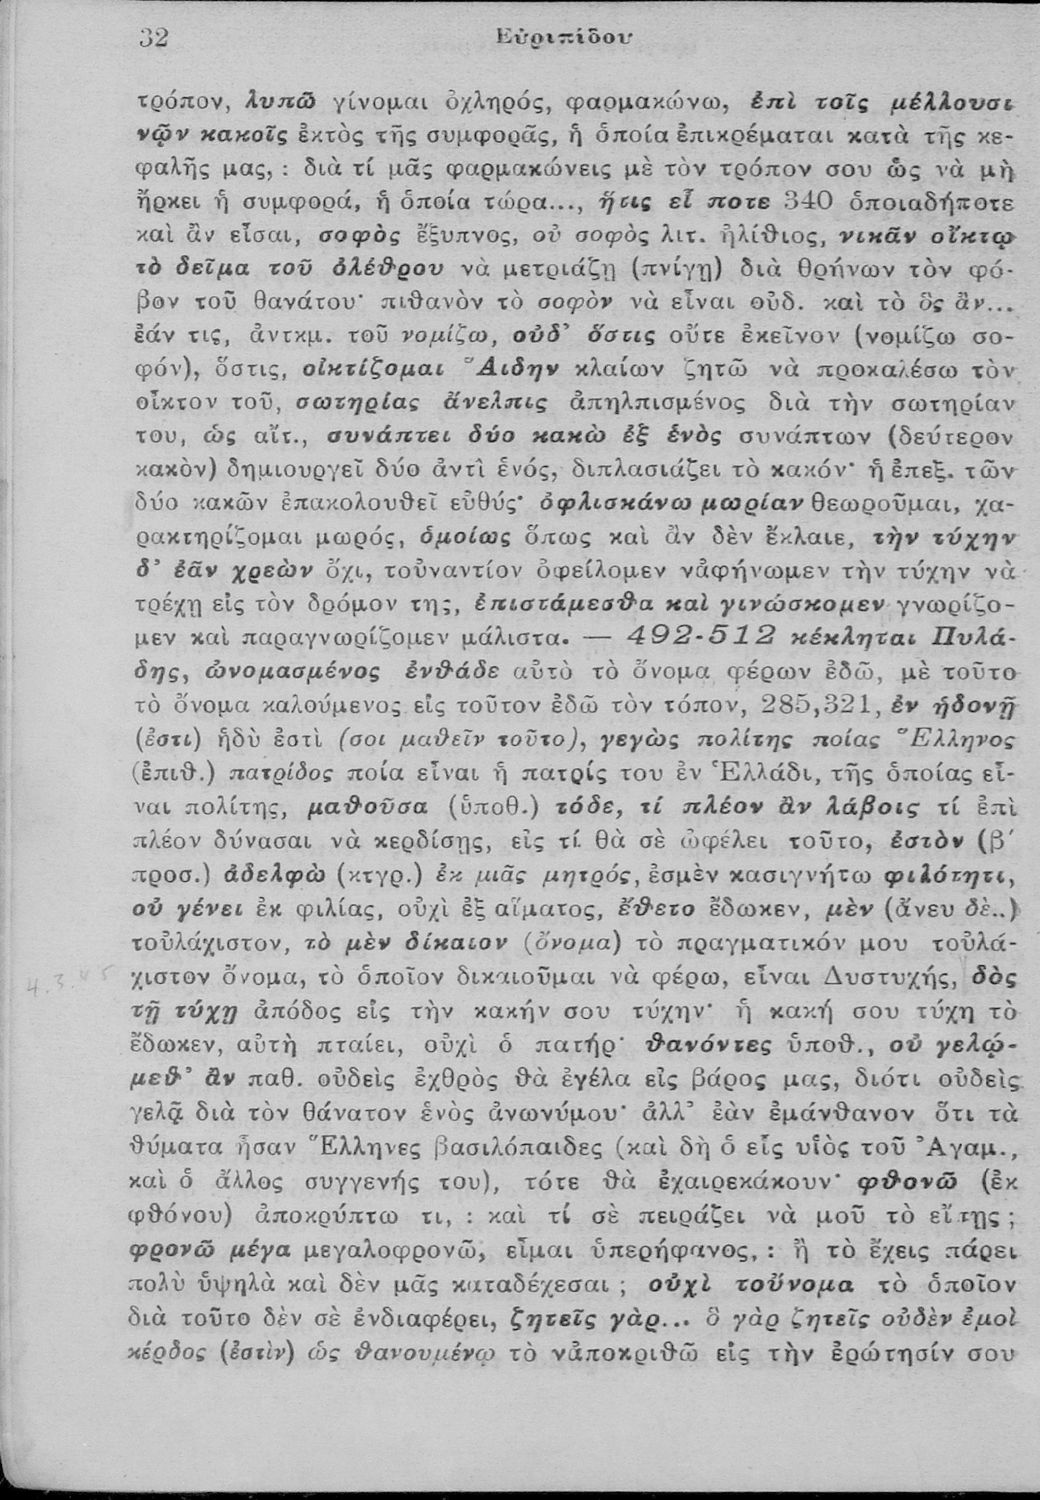 32
Εὐριπίδου
τρόπον, λυπῶ γίνομαι ὀχληρός, φαρμακώνω, ἐπὶ τοῖς μέλλουσι
νῷν κακοῖς ἐκτὸς τῆς συμφορᾶς, ἡ ὁποία ἐπικρέμαται κατὰ τῆς κε-
φαλῆς μας, : διὰ τί μᾶς φαρμακώνεις μὲ τὸν τρόπον σου ὡς νὰ μὴ
ἤρκει ἡ συμφορά, ἡ ὁποία τώρα..., ἥτις εἶ ποτε 340 ὁποιαδήποτε
καὶ ἂν εἶσαι, σοφὸς ἔξυπνος, οὐ σοφὸς λιτ. ἠλίθιος, νικᾶν οἴκτῳ
τὸ δεῖμα τοῦ ὀλέθρου νὰ μετριάζῃ (πνίγῃ) διὰ θρήνων τὸν φό-
βον τοῦ θανάτου· πιθανὸν τὸ σοφὸν νὰ εἶναι οὐδ. καὶ τὸ ὃς ἂν...
ἐάν τις, ἀντκμ. τοῦ νομίζω, οὐδ' ὅστις οὔτε ἐκεῖνον (νομίζω σο-
φόν), ὅστις, οἰκτίζομαι Ἅιδην κλαίων ζητῶ νὰ προκαλέσω τὸν
οἶκτον τοῦ, σωτηρίας ἄνελπις ἀπηλπισμένος διὰ τὴν σωτηρίαν
του, ὡς αἴτ., συνάπτει δύο κακὼ ἐξ ἑνὸς συνάπτων (δεύτερον
κακὸν) δημιουργεῖ δύο ἀντὶ ἑνός, διπλασιάζει τὸ κακόν· ἡ ἐπεξ. τῶν
δύο κακῶν ἐπακολουθεῖ εὐθύς· ὀφλισκάνω μωρίαν θεωροῦμαι, χα-
ρακτηρίζομαι μωρός, ὁμοίως ὅπως καὶ ἂν δὲν ἔκλαιε, τὴν τύχην
δ' ἐᾶν χρεὼν ὄχι, τοὐναντίον ὀφείλομεν νἀφήνωμεν τὴν τύχην νὰ
τρέχῃ εἰς τὸν δρόμον της, ἐπιστάμεσθα καὶ γινώσκομεν γνωρίζο-
μεν καὶ παραγνωρίζομεν μάλιστα. — 492-512 κέκληται Πυλά-
δης, ὠνομασμένος ἐνθάδε αὐτὸ τὸ ὄνομα φέρων ἐδῶ, μὲ τοῦτο
τὸ ὄνομα καλούμενος εἰς τοῦτον ἐδῶ τὸν τόπον, 285,321, ἐν ἡδονῇ
(ἐστι) ἡδὺ ἐστὶ (σοι μαθεῖν τοῦτο), γεγὼς πολίτης ποίας Ἕλληνος
(ἐπιθ.) πατρίδος ποία εἶναι ἡ πατρίς του ἐν Ἑλλάδι, τῆς ὁποίας εἶ-
ναι πολίτης, μαθοῦσα (ὑποθ.) τόδε, τί πλέον ἂν λάβοις τί ἐπὶ
πλέον δύνασαι νὰ κερδίσῃς, εἰς τί θὰ σὲ ὠφέλει τοῦτο, ἐστὸν (β΄
προσ.) ἀδελφὼ (κτγρ.) ἐκ μιᾶς μητρός, ἐσμὲν κασιγνήτω φιλότητι,
οὐ γένει ἐκ φιλίας, οὐχὶ ἐξ αἵματος, ἔθετο ἔδωκεν, μὲν (ἄνευ δὲ..)
τοὐλάχιστον, τὸ μὲν δίκαιον (ὄνομα) τὸ πραγματικόν μου τοὐλά-
χιστον ὄνομα, τὸ ὁποῖον δικαιοῦμαι νὰ φέρω, εἶναι Δυστυχής, δὸς
τῇ τύχῃ ἀπόδος εἰς τὴν κακήν σου τύχην· ἡ κακή σου τύχη τὸ
ἔδωκεν, αὐτὴ πταίει, οὐχὶ ὁ πατήρ· θανόντες ὑποθ., οὐ γελῴ-
μεθ' ἂν παθ. οὐδεὶς ἐχθρὸς θὰ ἐγέλα εἰς βάρος μας, διότι οὐδεὶς
γελᾷ διὰ τὸν θάνατον ἑνὸς ἀνωνύμου· ἀλλ' ἐὰν ἐμάνθανον ὅτι τὰ
θύματα ἦσαν Ἕλληνες βασιλόπαιδες (καὶ δὴ ὁ εἷς υἱὸς τοῦ Ἀγαμ.,
καὶ ὁ ἄλλος συγγενής του), τότε θὰ ἐχαιρεκάκουν· φθονῶ (ἐκ
φθόνου) ἀποκρύπτω τι, : καὶ τί σὲ πειράζει νὰ μοῦ τὸ εἴπῃς ;
φρονῶ μέγα μεγαλοφρονῶ, εἶμαι ὑπερήφανος, : ἢ τὸ ἔχεις πάρει
πολὺ ὑψηλὰ καὶ δὲν μᾶς καταδέχεσαι ; οὐχὶ τοὔνομα τὸ ὁποῖον
διὰ τοῦτο δὲν σὲ ἐνδιαφέρει, ζητεῖς γὰρ... ὃ γὰρ ζητεῖς οὐδὲν ἐμοὶ
κέρδος (ἐστὶν) ὡς θανουμένῳ τὸ νἀποκριθῶ εἰς τὴν ἐρώτησίν σου